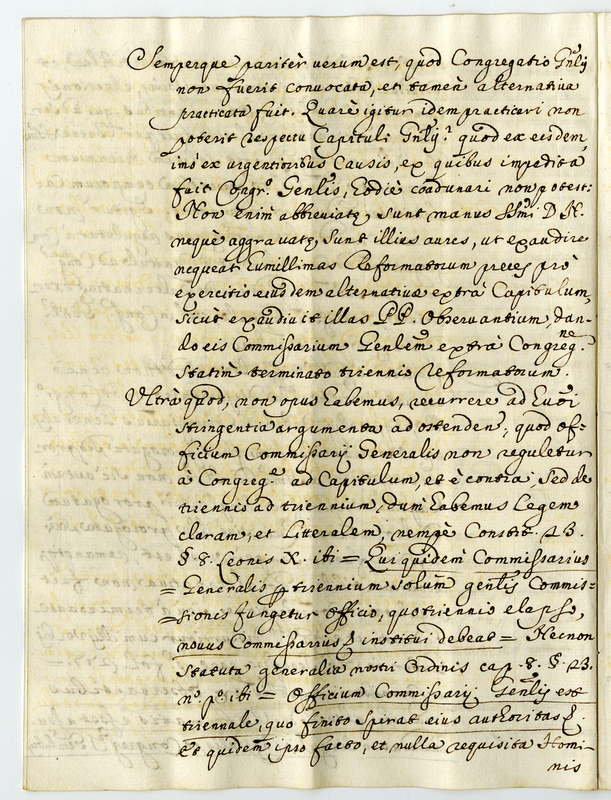 Semperque paritèr verum est, quod Congregatio Gñlis
non fuerit convocata, et tamen alternativa
practicata fuit. Quarè igitur idem practicari non
poterit respectu Capituli Gñlis? quod ex eisdem,
imò ex urgentioribus Causis, ex quibus impedita
fuit Congr.º Genlis, hodiè coadunari non potest:
Non enim abbreviatę, sunt manus SSmi D. N.
nequè aggravatę, sunt illius aures, ut exaudire
nequeat humillimas Reformatorum preces prò
exercitio eiusdem alternativæ extrà Capitulum,
sicut exaudivit illas PP. Observantium, dan-
do eis Commissarium Genlem extrà Congreg.ne
statim terminato triennio Reformatorum.
Ultrà quod, non opus habemus, recurrere ad
stringentia argumenta ad ostendend, quod of-
ficium Commissarij Generalis non reguletur
à Congreg.e ad Capitulum, et è contrà, sed de
triennio ad triennium, dum habemus Legem
claram, et Litteralem, nempè Constit. 23.
§ 8. Leonis X. ibi = Qui quidem Commissarius
= Generalis p triennium solum genlis Commis-
=sionis fungetur officio, quo triennio elapso,
novus Commissarius &. institui debeat = Necnon
Statuta generalia nostri Ordinis cap. 8. §. 23.
n.º p.º ibi = Officium Commissarij Genlis est
triennale, quo finito spirat eius authoritas &.
Et quidem ipso facto, et nulla requisita Homi-
nis